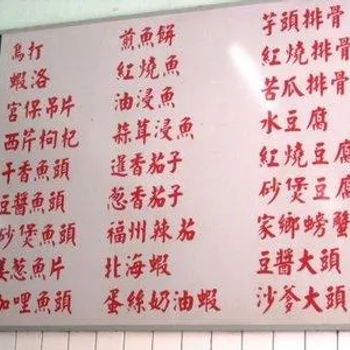 烏打
蝦洛
宮保吊片
西芹枸杞
干香魚頭
豆醬魚頭
砂煲魚頭
葱魚片
咖哩魚頭
煎魚餅
紅燒魚
油浸魚
蒜茸浸魚
暹香茄子
葱香茄子
福州辣茄
北海蝦
蛋絲奶油蝦
芋頭排骨
紅燒排骨
苦瓜排骨
水豆腐
紅燒豆腐
砂煲豆腐
家鄉螃蟹
豆醬大頭
沙爹大頭